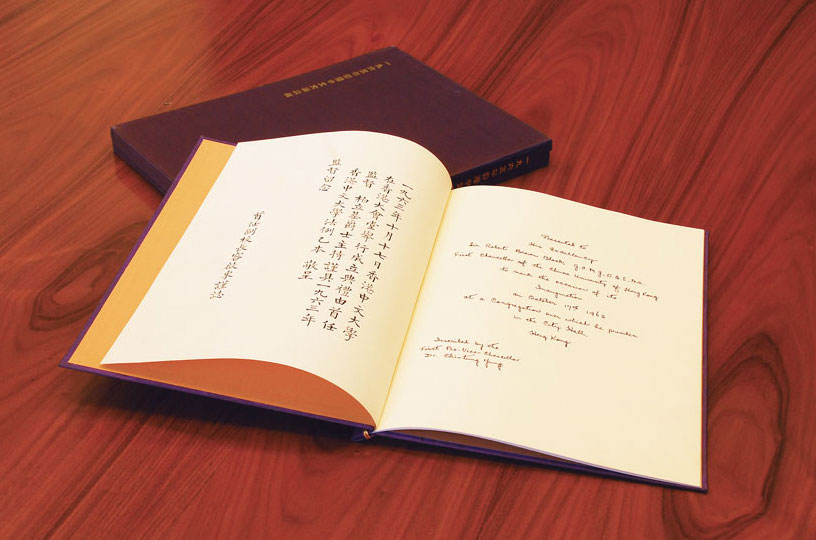 一九六三年十月十七日香港中文大學
在香港大會堂舉行成立典禮由首任
監督 柏立基爵士主持謹具一九六三年
香港中文大學法例乙本 敬呈
監督留念
首任副校長容啟東謹誌
Presented to
His Excellency
Sir Robert Brown Black,
First Chancellor of the Chinese University of Hong Kong
to mark the occasion of its
Inauguration
on October 17th 1963
at a Congregation over which he presides
in the City Hall
Hong Kong
Inscribed by the
First Pro-Vice-Chancellor
Dr. Chi-tung Yung